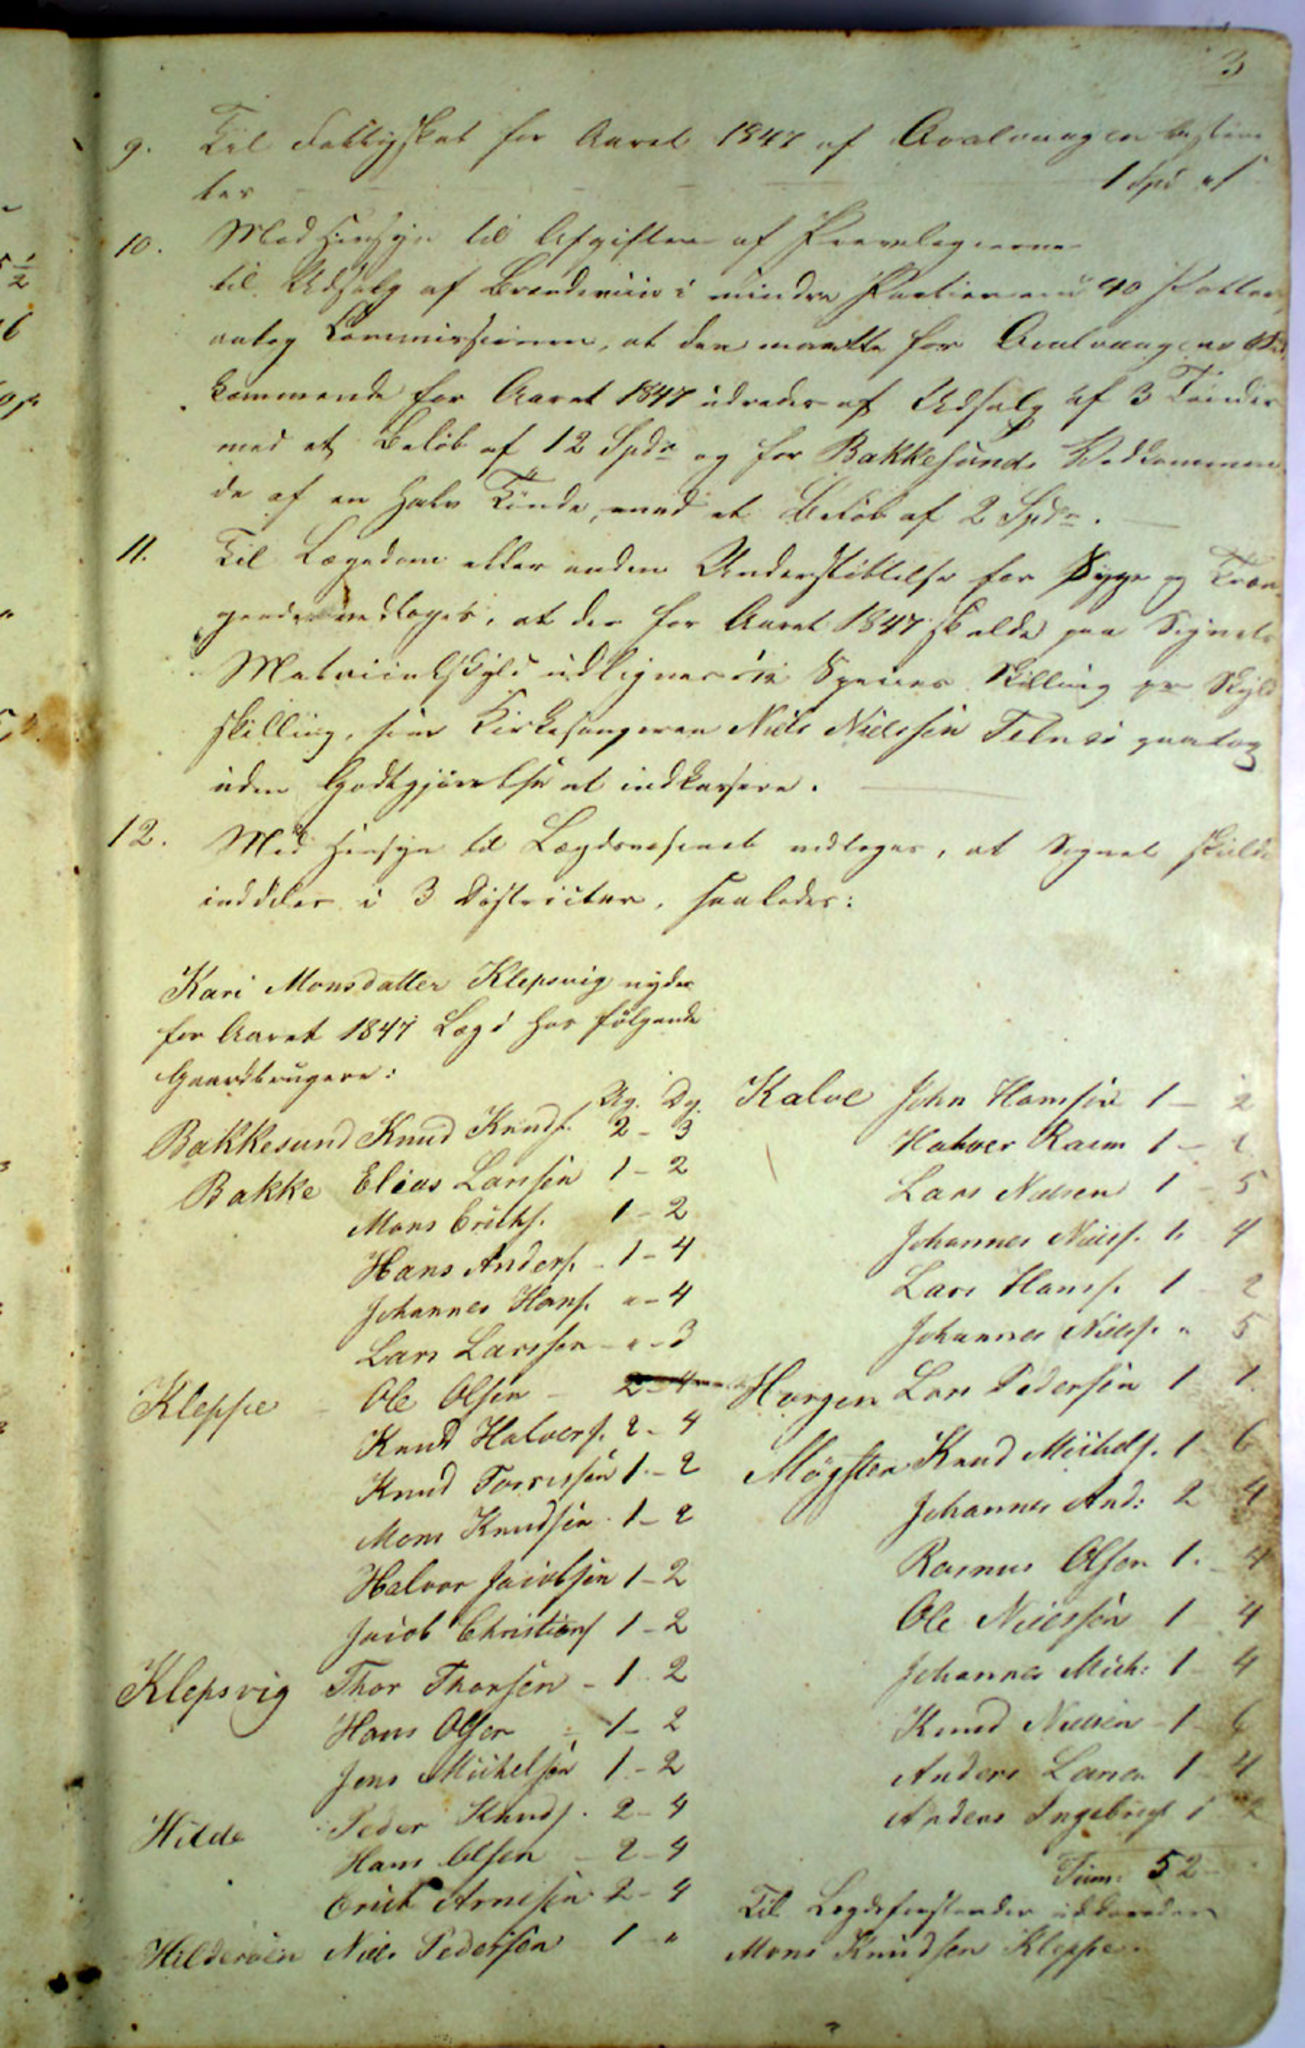 3
9. Til Fattigskat for Aaret 1847 af Hvalvaagen bestem
tes 1 Spd
10. Med Hensyn til Afgiften af
til Udsalg af Brændeviin i mindre Partier end 40 Potter,
antog Commissionen, at den maatte for Hvalvaagens Ved,
kommende for Aaret 1847 udredes af Udsalg af 3 Tønder
med et Beløb af 12 Spdr og for Bakkesunds Vedkommen,
de af en halv Tønde, med et Beløb af 2 Spdr.
11. Til Lægedom eller anden Understøttelse for Syge og Træn,
gende vedtoges, at der for Aaret 1847 skulde paa Sognets
Matriculskyld udlignes Species Skilling pr Skyld
skilling, som Kirkesangeren Niels Nielssen paatog
uden Godtgjørelse at indkassere.
12. Med Hensyn til Lægdsvæsenet vedtoges, at Sognet skulde
inddeles i 3 Districter, saaledes:
Kari Monsdatter Klepsvig nyder
for Aaret 1847 Lægd hos følgende
Gaardbrugere:
Ug. Dg.
Bakkesund Knud Knuds. 2 - 3
Bakke Elias Larsen 1 - 2
Mons Ericks. 1 - 2
Hans Anders. - 1 - 4
Johannes Hans. " - 4
Lars Larssen - " - 3
Kleppe Ole Olsen - 2 - 4
Knud Halvors. 2 - 4
Knud Torrissen 1 - 2
Mons Knudsen 1 - 2
Halvor Jacobsen 1 - 2
Jacob Christians 1 - 2
Klepsvig Thor Thorsen - 1 - 2
Hans Olsen - 1 - 2
Jens Michelsen 1 - 2
Hilde Peder Knuds. 2 - 4
Hans Olsen - 2 - 4
Erick Arnesen 2 - 4
Hilderøen Niels Pedersen 1 - "
Kalve John Hansen 1 - 2
Halvor Rasm 1 -
Lars Nielsen 1 - 5
Johannes Niels. 1 - 4
Lars Hans. 1 - 2
Johannes Niels. " 5
Horgen Lars Pedersen 1 1
Møgster Knud Michels. 1 6
Johannes And: 2 4
Rasmus Olsen 1 - 4
Ole Nielssen 1 - 4
Johannes Mich: 1 - 4
Knud Nielsen - 1 - 6
Anders Larsen 1 - 4
Anders Ingebrigt 1 2
Sum: 52 -
Til Lægdsforstander
Mons Knudsen Kleppe.